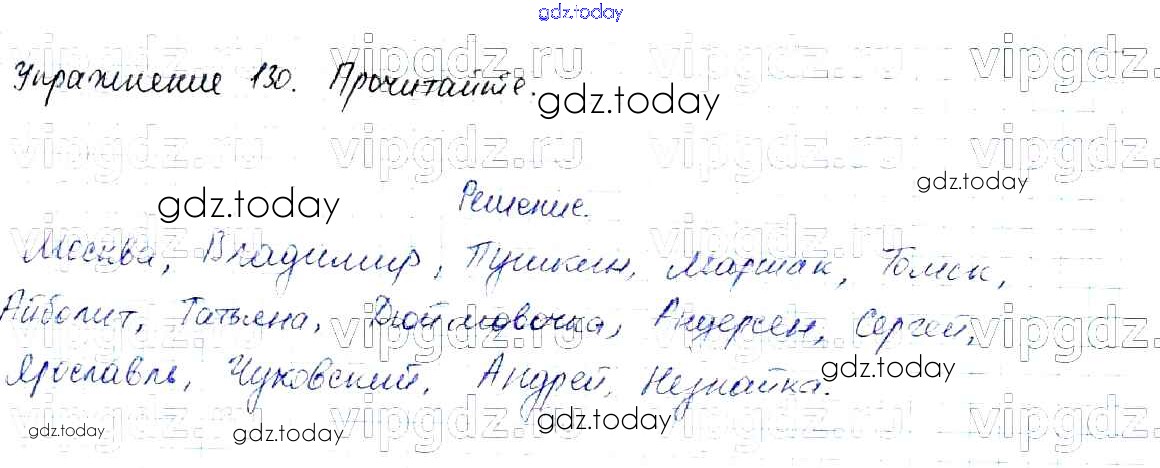 gdz.today
vipgdz.ru vipgdz.ru vipgdz.ru vipgdz
Упражнение 130. Прочитайте.
gdz.today
vipgdz.ru vipgdz.ru vipgdz.ru vipgdz
gdz.today
gdz.today
Решение.
vipgdz.ru vipgdz.ru vipgdz.ru vipgdz
Москва, Владимир, Пушкин, Маршак, Томск,
Айболит, Татьяна, Дюймовочка, Андерсен, Сергей,
vipgdz.ru vipgdz.ru vipgdz.ru vipgdz
Ярославль, Чуковский, Андрей, Незнайка.
gdz.today
vipgdz.ru vipgdz.ru vipgdz.ru vipgdz
gdz.today
gdz.today
gdz.today